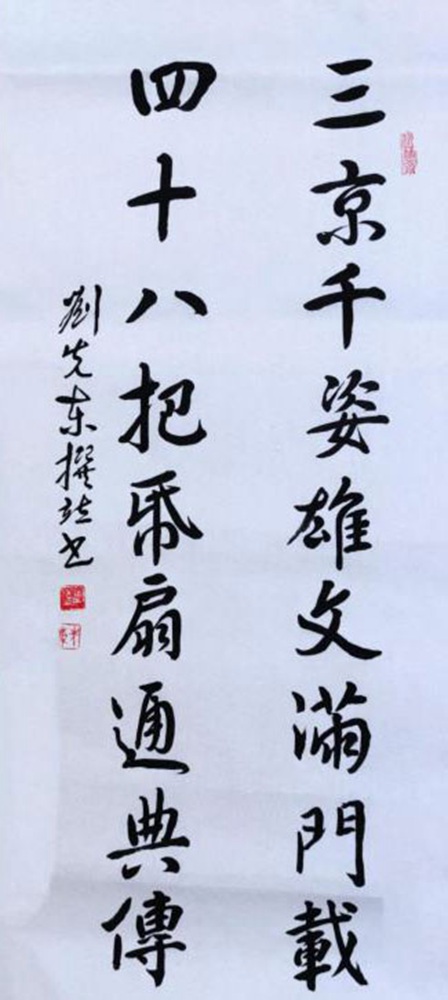 三京千姿雄文滿門載
四十八把帋扇通典傳
劉先東撰並书